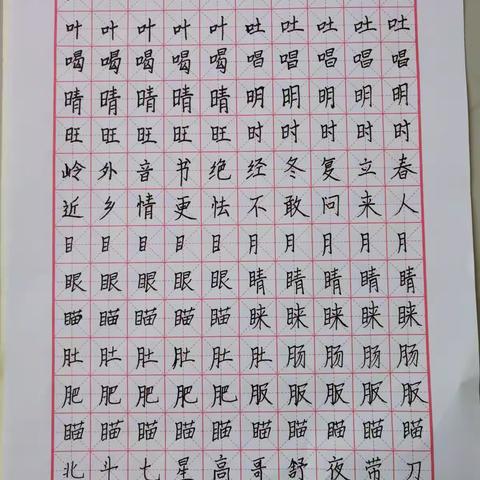 叶叶叶叶叶吐吐吐吐吐
喝喝喝喝喝唱唱唱唱唱
晴晴晴晴晴明明明明明
旺旺旺旺旺时时时时时
岭外音书绝经冬复立春
近乡情更怯不敢问来人
目目目目目月月月月月
眼眼眼眼眼睛睛睛睛睛
瞄瞄瞄瞄瞄睐睐睐睐睐
肚肚肚肚肚肚肠肠肠肠
肥肥肥肥肥服服服服服
瞄瞄瞄瞄瞄瞄瞄瞄瞄瞄
北斗七星高哥舒夜带刀